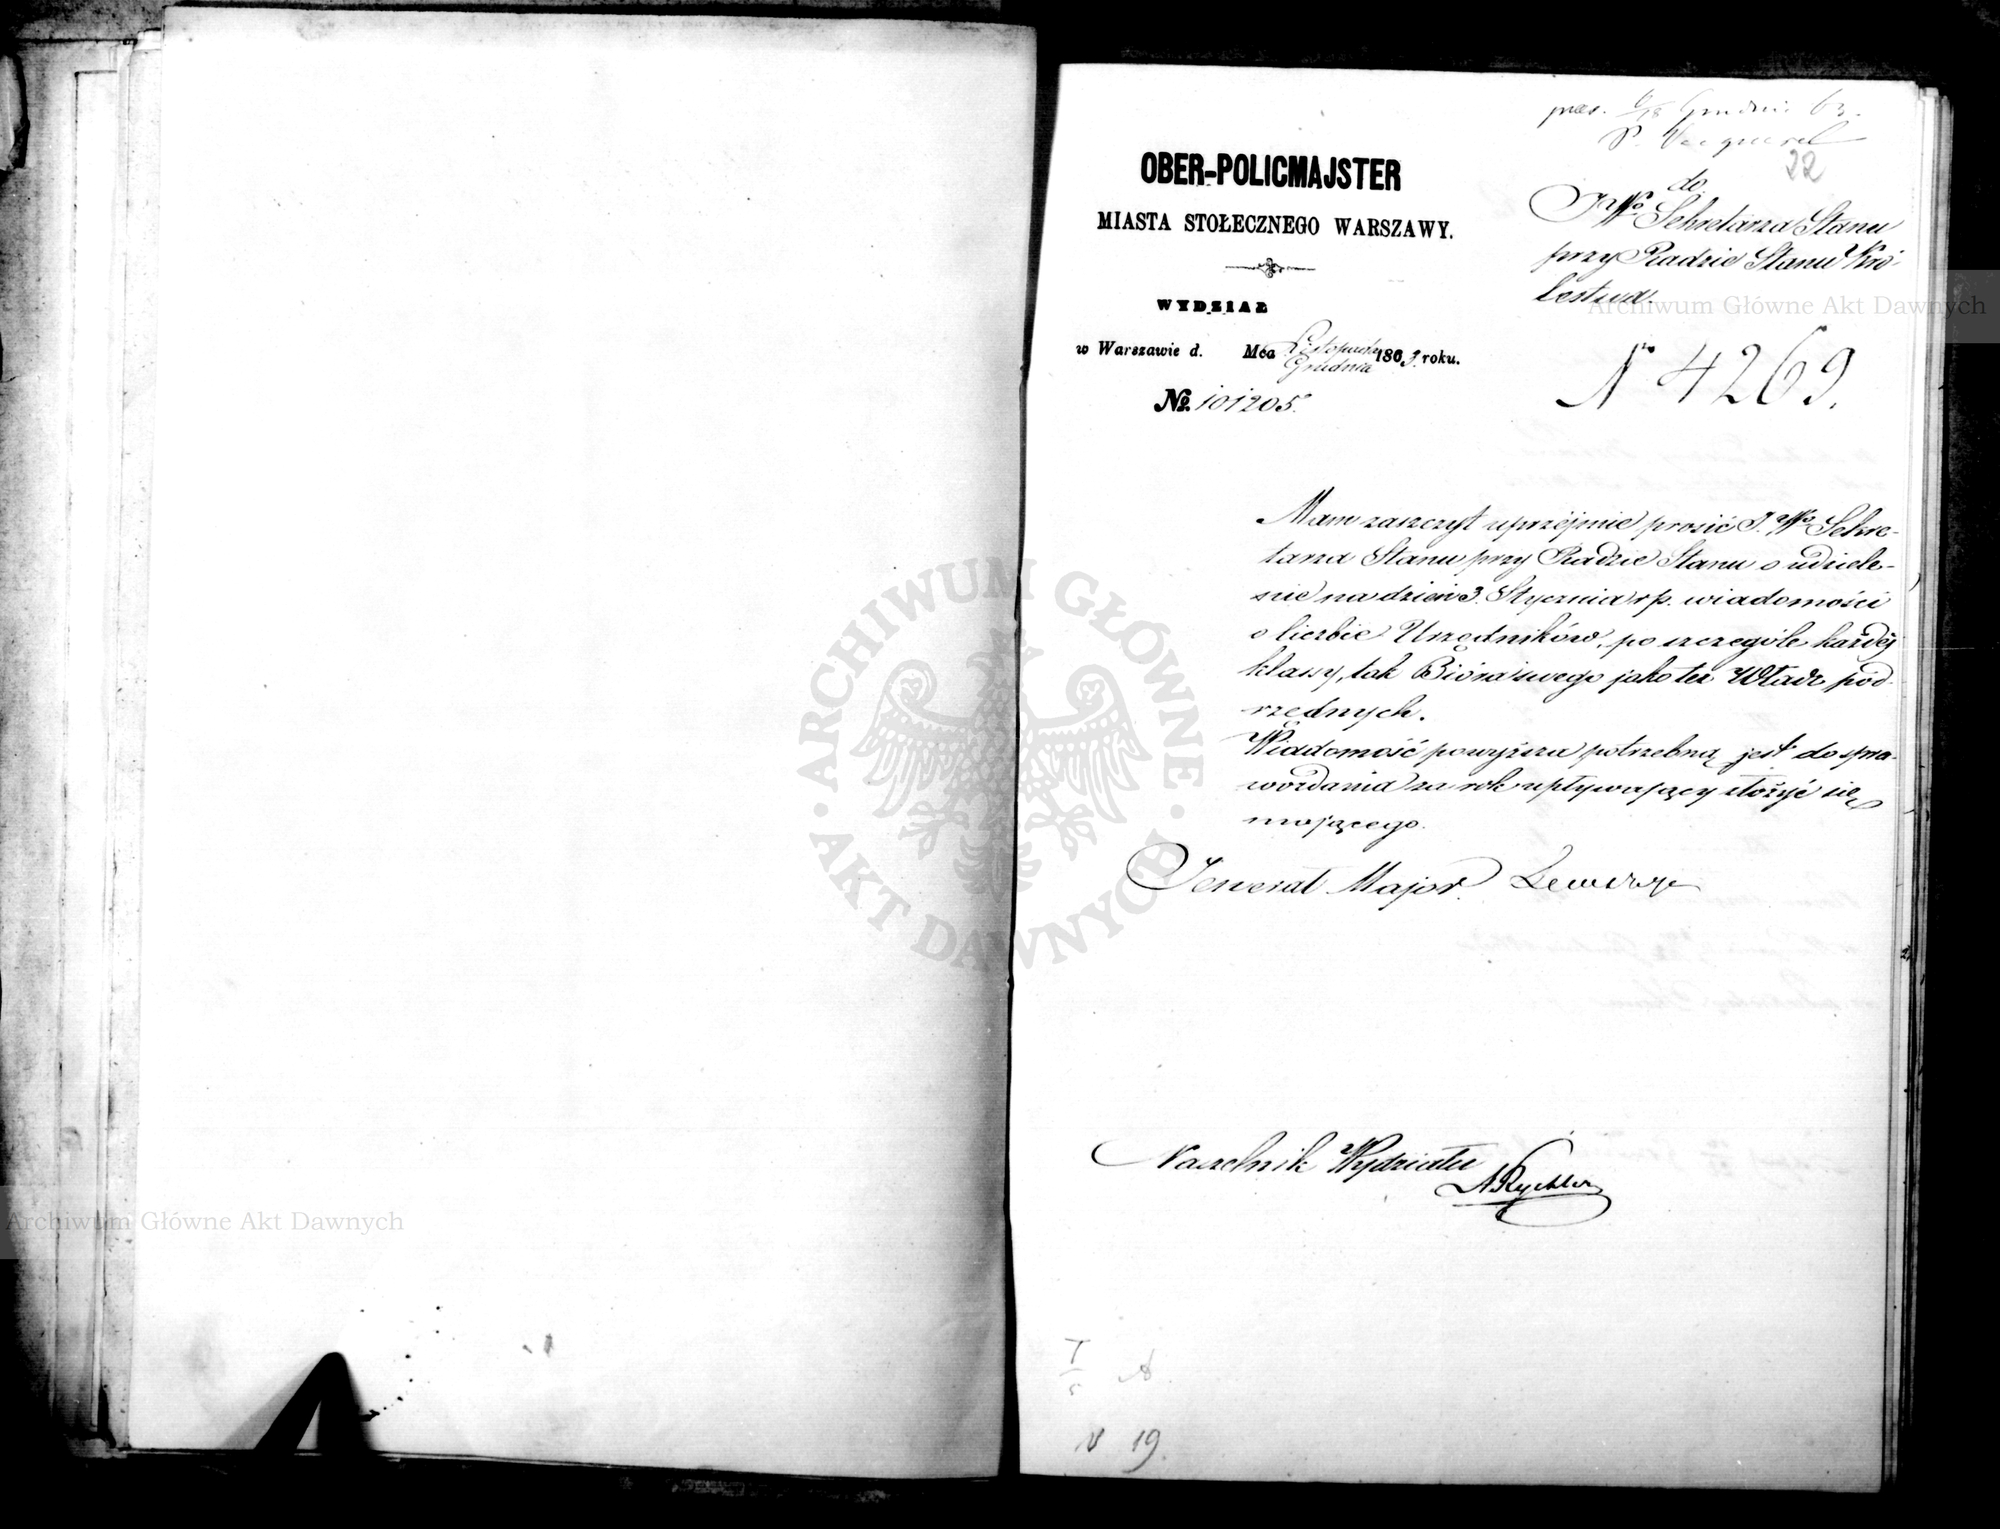 pres. 6/18 Grudnia 63.
P.
22
OBER-POLICMAJSTER
MIASTA STOŁECZNEGO WARSZAWY.
WYDZIAŁ
w Warszawie d. Mca Listopada/Grudnia 1863 roku.
No. 101205.
do
JWo Sekretarza Stanu
przy Radzie Stanu Kró-
lestwa.
N 4269.
Mam zaszczyt uprzéjmie prosić J. Wo Sekre-
tarza Stanu przy Radzie Stanu o udziele-
nie na dzień 3. Stycznia r p. wiadomości
o liczbie Urzędników, po szczególe każdéj
klassy, tak Bióra swego jako też Władz pod-
rzędnych.
Wiadomość powyższa potrzebną jest do spra-
wozdania za rok upływający złożyć się
mającego.
Jenerał Major
Naczelnik Wydziału
A Rychter
T/s
N 19.
ARCHIWUM GŁÓWNE AKT DAWNYCH
Archiwum Główne Akt Dawnych
Archiwum Główne Akt Dawnych